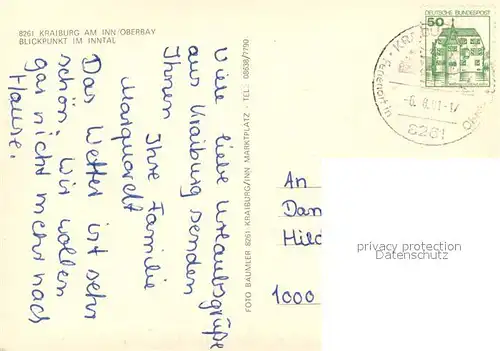 8261 KRAIBURG AM INN/OBERBAY
BLICKPUNKT IM INNTAL
Viele liebe Urlaubsgrüße
aus Kraiburg senden
Ihnen
Ihre Familie
Marquardt
Das Wetter ist sehr
schön. Wir wollen
gar nicht mehr nach
Hause.
FOTO BÄUMLER 8261 KRAIBURG/INN MARKTPLATZ - TEL.: 08638/7790
DEUTSCHE BUNDESPOST
50
KRAIBU
-6.8.81-1
8261
An
Dan
Hild
1000
privacy protection
Datenschutz